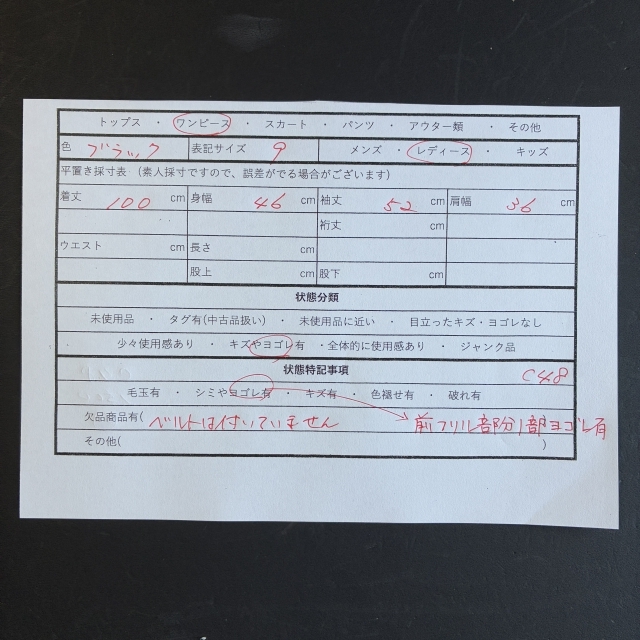 トップス ・ ワンピース ・ スカート ・ パンツ ・ アウター類 ・ その他
色 ブラック 表記サイズ 9 メンズ ・ レディース ・ キッズ
平置き採寸表 (素人採寸ですので、誤差がでる場合がございます)
着丈 100 cm 身幅 46 cm 袖丈 52 cm 肩幅 36 cm
裄丈 cm
ウエスト cm 長さ cm
股上 cm 股下 cm
状態分類
未使用品 ・ タグ有(中古品扱い) ・ 未使用品に近い ・ 目立ったキズ・ヨゴレなし
少々使用感あり ・ キズやヨゴレ有 ・全体的に使用感あり ・ ジャンク品
状態特記事項 C48
毛玉有 ・ シミやヨゴレ有 ・ キズ有 ・ 色褪せ有 ・ 破れ有
欠品商品有( ベルトは付いていません 前フリル部分1部ヨゴレ有
その他( )